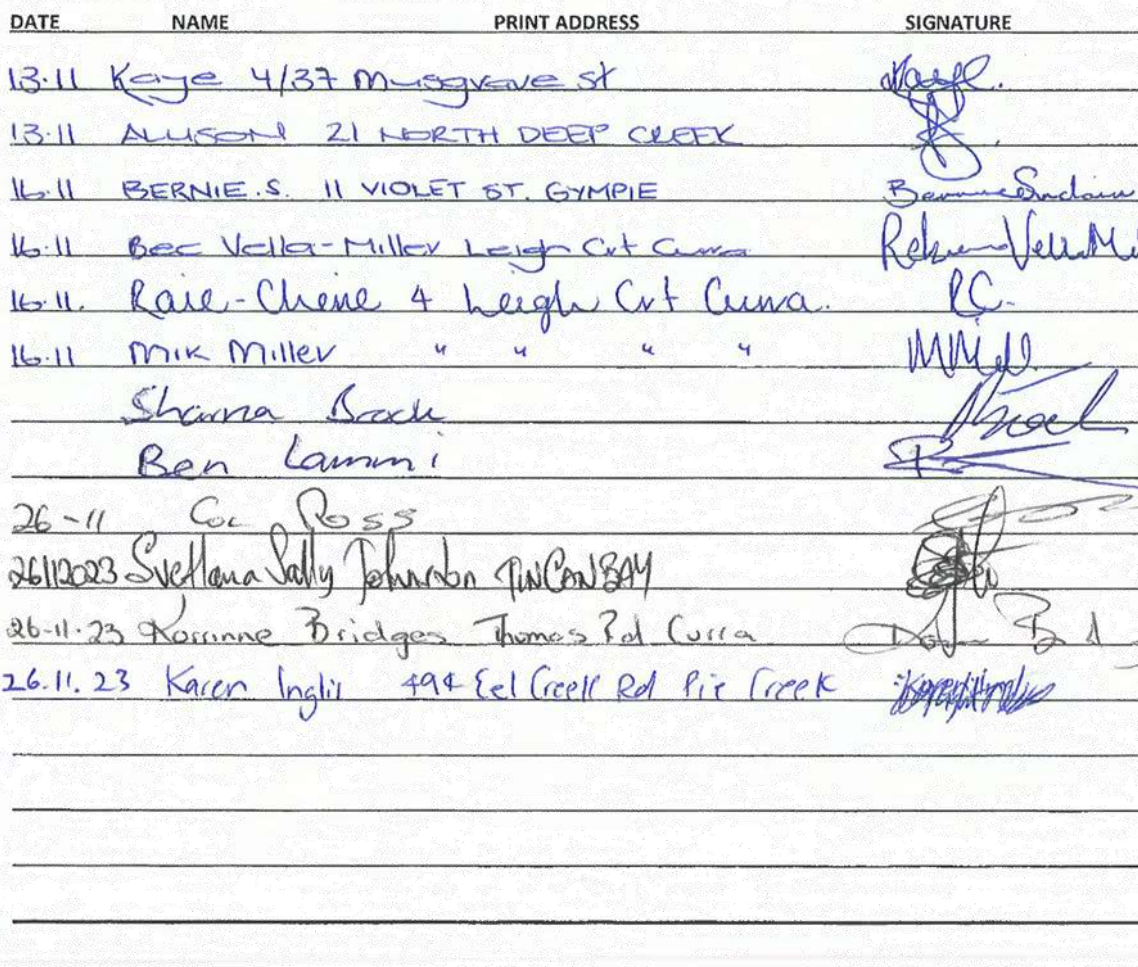 DATE NAME PRINT ADDRESS SIGNATURE
13.11 Kaye 4/37 Musgrave st Kaye.
13.11 ALLISON 21 NORTH DEEP CREEK
16.11 BERNIE.S. 11 VIOLET ST. GYMPIE
16.11 Bec Vella-Miller Leigh Crt Curra
16.11. Raie-Chene 4 Leigh Crt Curra. RC.
16.11 Mik Miller " " " "
Sharna Brock Brock
Ben Lammi
26-11 Ross
26112023 Svetlana Sally Johnston TINCANBAY
26-11-23 Korrinne Bridges Thomas Rd Curra
26.11.23 Karen Inglis 494 Eel Creek Rd Pie Creek